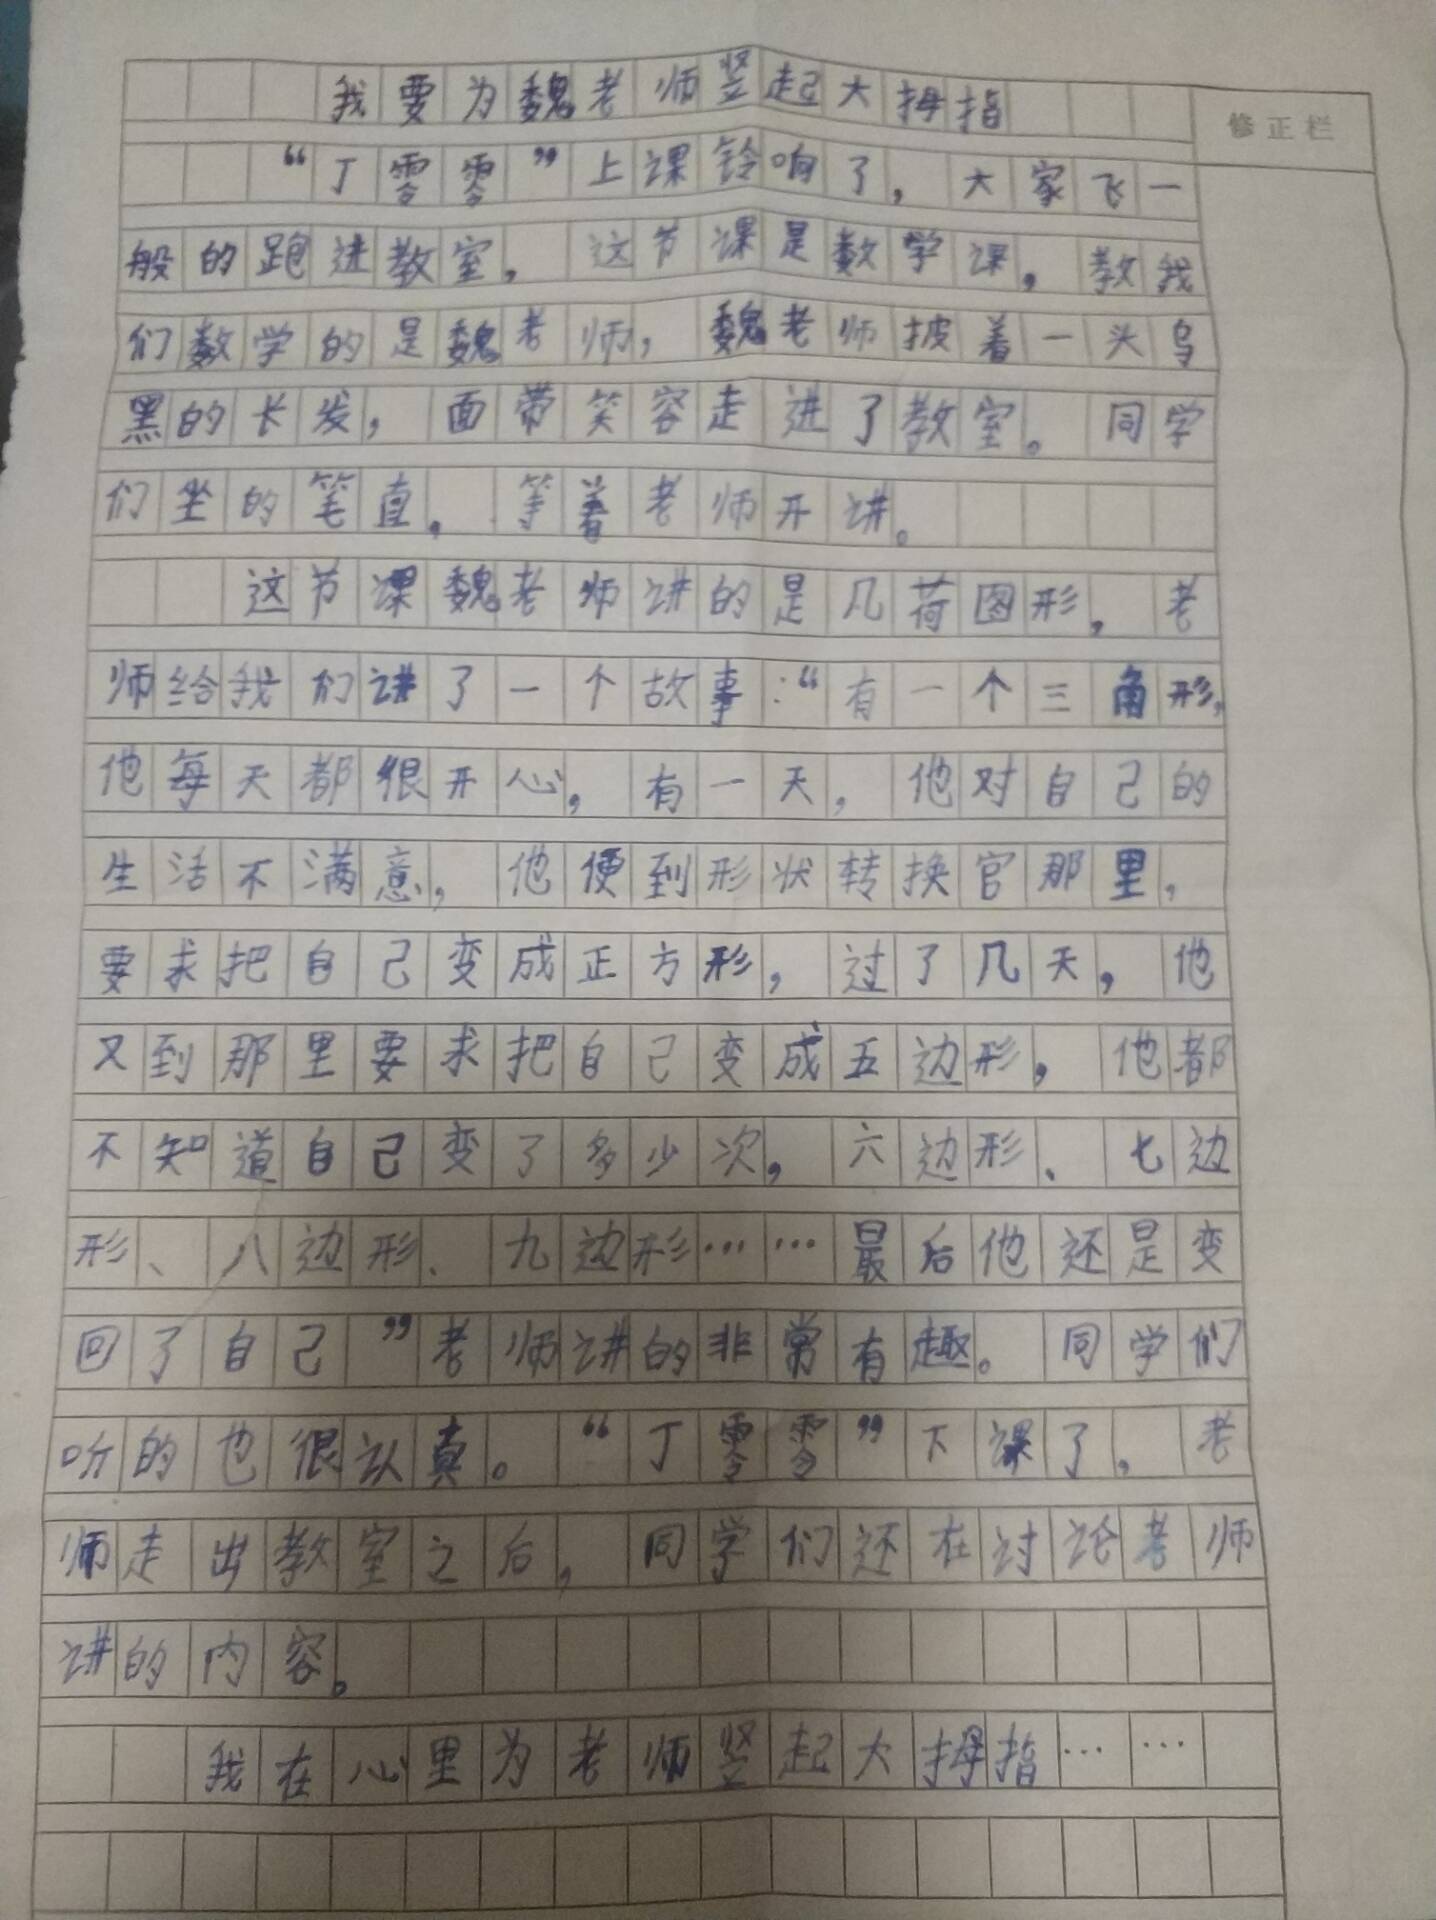 我要为魏老师竖起大拇指
修正栏
“丁零零”上课铃响了，大家飞一
般的跑进教室，这节课是数学课，教我
们数学的是魏老师，魏老师披着一头乌
黑的长发，面带笑容走进了教室。同学
们坐的笔直，等着老师开讲。
这节课魏老师讲的是几荷图形，老
师给我们讲了一个故事：“有一个三角形，
他每天都很开心，有一天，他对自己的
生活不满意，他便到形状转换官那里，
要求把自己变成正方形，过了几天，他
又到那里要求把自己变成五边形，他都
不知道自己变了多少次，六边形、七边
形、八边形、九边形……最后他还是变
回了自己”老师讲的非常有趣。同学们
听的也很认真。“丁零零”下课了，老
师走出教室之后，同学们还在讨论老师
讲的内容。
我在心里为老师竖起大拇指……